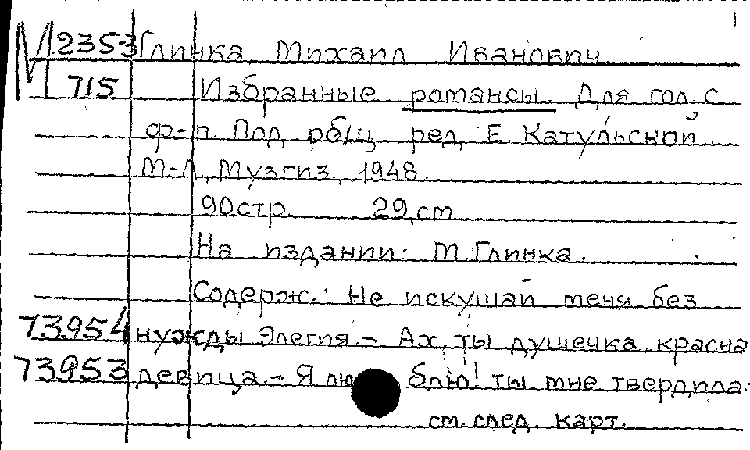 1
М 2353 Глинка Михаил Иванович
715 Избранные романсы. Для гол. с
ф-п. Под общ. ред. Е. Катульской
М-Л, Музгиз, 1948.
90стр. 29 см
На издании: М. Глинка.
Содерж.: Не искушай меня без
73954 нужды. Элегия. – Ах, ты душечка, красна
73953 девица. – Я люблю! ты мне твердила.
см. след. карт.